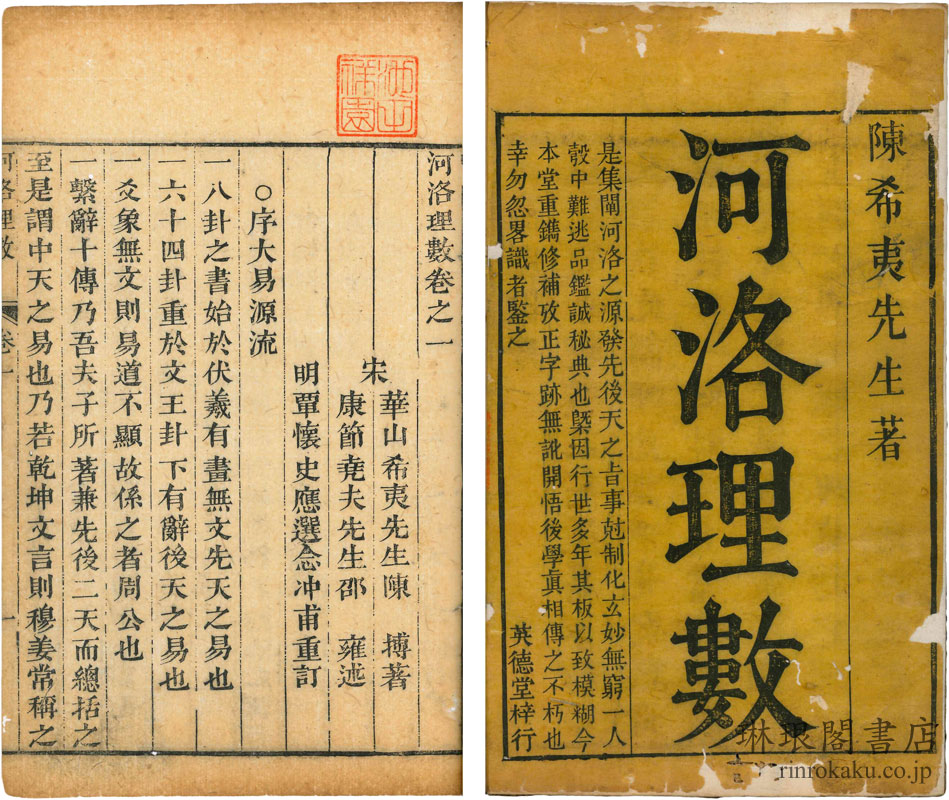 陳希夷先生著
河洛理數
是集闡河洛之源發先後天之旨事尅制化玄妙無窮一人
彀中難逃品鑑誠秘典也槩因行世多年其板以致模糊今
本堂重鐫修補攷正字跡無訛開悟後學眞相傳之不朽也
幸勿忽畧識者鑒之 英德堂梓行
河洛理數卷之一
宋
華山希夷先生陳 摶著
康節堯夫先生邵 雍述
明覃懷史應選念冲甫重訂
○序大易源流
一八卦之書始於伏羲有畫無文先天之易也
一六十四卦重於文王卦下有辭後天之易也
一爻象無文則易道不顯故係之者周公也
一繫辭十傳乃吾夫子所著兼先後二天而總括之
至是謂中天之易也乃若乾坤文言則穆姜常稱之
河洛理數 卷一 一
琳琅閣書店
rinrokaku.co.jp